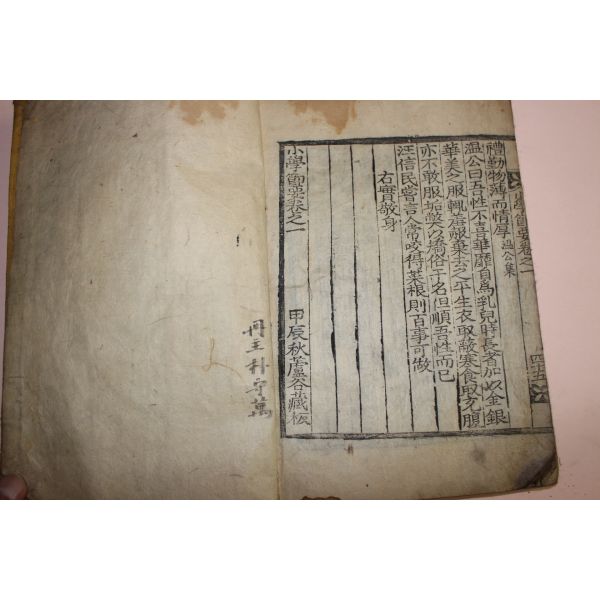 小學節要卷之一
四十五
禮勤物薄而情厚 溫公集
溫公曰吾性不喜華靡自爲乳兒時長者加以金銀
華美之服輒羞赧棄去之平生衣取蔽寒食取充腹
亦不敢服垢弊以矯俗干名但順吾性而已
汪信民嘗言人常咬得菜根則百事可做
右實敬身
小學節要卷之一
甲辰秋蘆谷藏板
冊主朴守萬